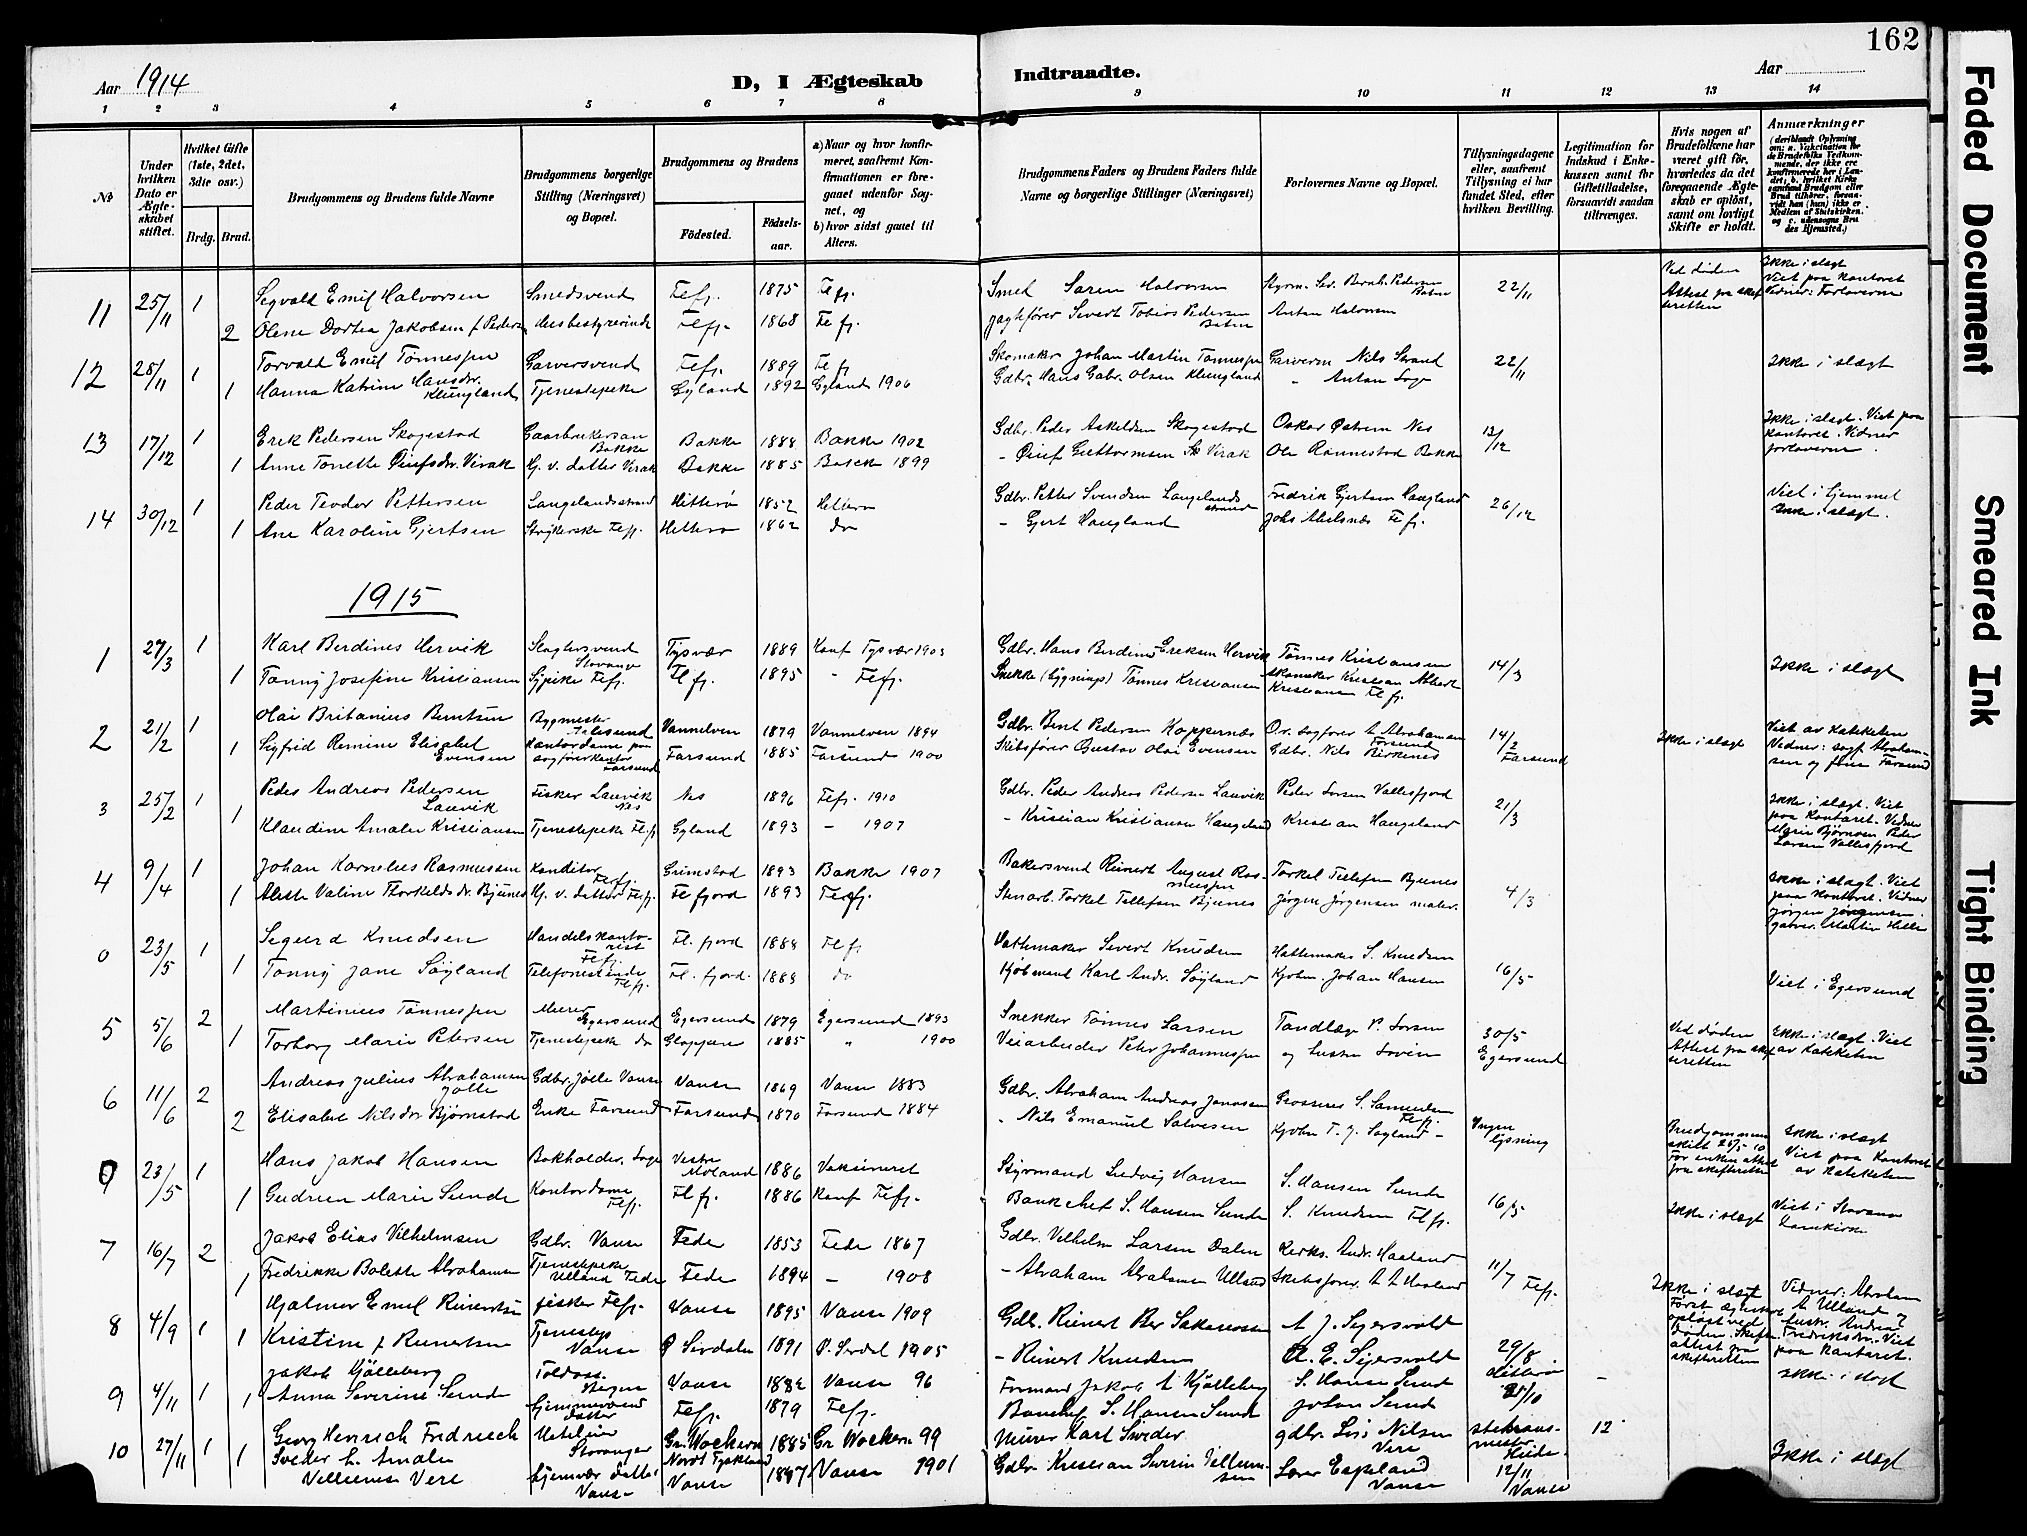 162
Aar 1914
D, I Ægteskab
Indtraadte.
Aar
1 2 3 4 5 6 7 8 9 10 11 12 13 14
No
Under hvilken Dato er Ægteskabet stiftet.
Hvilket Gifte (1ste, 2det, 3die osv.)
Brdg. Brud.
Brudgommens og Brudens fulde Navne
Brudgommens borgerlige Stilling (Næringsvei) og Bopæl.
Brudgommens og Brudens
Födested.
Födselsaar.
a) Naar og hvor konfirmeret, saafremt Konfirmationen er foregaaet udenfor Sognet, og
b) hvor sidst gaaet til Alters.
Brudgommens Faders og Brudens Faders fulde Navne og borgerlige Stillinger (Næringsvei)
Forlovernes Navne og Bopæl.
Tillysningsdagene eller, saafremt Tillysning ei har fundet Sted, efter hvilken Bevilling.
Legitimation for Indskud i Enkekassen samt for Giftetilladelse, forsaavidt saadan tiltrænges.
Hvis nogen af Brudefolkene har været gift før, hvorledes da det foregaaende Ægteskab er oplöst, samt om lovligt Skifte er holdt.
Anmærkninger
11 25/11 1 Segvald Emil Halvorsen Smedsvend Flefj. 1875 Flefj. Smed Søren Halvorsen 22/11 Ved døden Ikke i slægt Viet paa kontoret
2 Olene Dortea Jakobsen f. Peders. Husbestyrerinde Flefj. 1868 Flefj. Jagtfører Sivert Tobias Pedersen Anton Halvorsen Attest fra skifteretten Vidner: Forloverne
12 28/11 1 Torvald Emil Tønnessen Garversvend Flefj. 1889 Flefj. Skomaker Johan Martin Tønnessen Garversv. Nils Strand 22/11 Ikke i slægt
1 Hanna Katrine Hansdr. Klungland Tjenestepike Gyland 1892 Gyland 1906 Gdbr. Hans Gabr. Olsen Klungland " Anton Loge
13 17/12 1 Erik Pedersen Skogestad Gaardbrukersøn Bakke Bakke 1888 Bakke 1902 Gdbr. Peder Askeldsen Skogestad Oskar Østrem Nes 13/12 Ikke i slægt. Viet paa kontoret. Vidner forloverne.
1 Anne Tonette Øiufsdr. Virak Hj. v. datter Virak Bakke 1885 Bakke 1899 - Øiuf Guttormsen Virak Ole Rannestad Bakke
14 30/12 1 Peder Teodor Pettersen Langelandsstrand Hitterø 1852 Hitterø Gdbr. Petter Svendsen Langelandsstrand Fredrik Gjertsen Haugland 26/12 Viet i hjemmet Ikke i slægt.
1 Ane Karoline Gjertsen Strykerske Flefj. Hitterø 1862 do - Gjert Haugland Johs Abelsnæs Flefj.
1915
1 27/3 1 Karl Berdines Hervik Slagtersvend Stavanger Tysvær 1889 Konf Tysvær 1903 Gdbr. Hans Berdines Eriksen Hervik Tønnes Kristiansen 14/3 Ikke i slægt
1 Tonny Josefine Kristiansen Sypike Flefj. Flefj. 1895 - Flefj. Snekker Tønnes Kristiansen Skomaker Kristian Albert Kristiansen Flefj.
2 21/2 1 Olai Britanius Berntsen Bygmester Aalesund Vannelven 1879 Vannelven 1894 Gdbr. Bent Pedersen Koppernæs Ov. sagfører A Abrahamsen Farsund 14/2 Farsund Ikke i slægt Viet av Kateketen
1 Sigfrid Remine Elisabet Evensen Kontordame paa sagførerkontor Farsund Farsund 1885 Farsund 1900 Skibsfører Gustav Olai Evensen Gdbr. Nils Birkenes Vidner: sagf. Abrahamsen og frue Farsund
3 25/2 1 Peder Andreas Pedersen Lauvik Fisker Lauvik Nes Nes 1896 Flefj. 1910 Gdbr. Peder Andreas Pedersen Lauvik Peder Larsen Vallesfjord 21/3 Ikke i slægt. Viet paa kontoret. Vidner Marie Bjørnsen Peder Larsen Vallesfjord
1 Klaudine Amalie Kristiansen Tjenestepike Flefj. Gyland 1893 - 1907 - Kristian Kristiansen Haugeland Kristian Haugeland
4 9/4 1 Johan Kornelius Rasmussen Konditor Flefj. Grimstad 1893 Bakke 1907 Bakersvend Reinert August Rasmussen Torkel Tellefsen Bjunes 4/3 Ikke i slægt. Viet paa kontoret. Vidner Jørgen Jørgensen
1 Aleste Valine Thorkelds dr. Bjunes Hj. v. datter Flefj. Flefjord 1893 Flefj. Stenarb. Torkel Tellefsen Bjunes Jørgen Jørgensen maler. garver. Martin Hille
0 23/5 1 Segurd Knudsen Handelskontorist Flefj. Fl. fjord 1888 Flefj Hattemaker Sivert Knudsen Hattemaker S. Knudsen 16/5 Viet i Egersund
1 Tonny Jane Søyland Telefonistinde Flefj. Fl. fjord. 1888 do Kjøbmand Karl Andr. Søyland Kjøbm. Johan Hansen
5 5/6 2 Martinius Tønnessen Murer Egersund Egersund 1879 Egersund 1893 Snekker Tønnes Larsen Tandlæge P. Larsen 30/5 Egersund Ved døden Attest fra skifteretten Ikke i slægt. Viet av Kateketen
1 Torborg Marie Petersen Tjenestepike do 1885 " 1900 Veiarbeider Peter Johannessen
6 11/6 2 Andreas Julius Abrahamsen Jølle Gdbr. Jølle Vanse Vanse 1869 Vanse 1883 Gdbr. Abraham Andreas Jonassen Grosserer S. Samuelsen Flefj. Ingen lysning Brudgommen skilt 25/5-10 For enken attest fra skifteretten Ikke i slægt Viet paa kontoret av kateketen
2 Elisabet Nilsdr Bjørnstad Enke Farsund Farsund 1870 Farsund 1884 - Nils Emanuel Salvesen Kjøbm T. J. Søyland -
0 23/5 1 Hans Jakob Hansen Bokholder, Loge Vestre Moland 1886 Vaksineret Styrmand Ludvig Hansen S. Hansen Sunde 16/5 Ikke i slægt Viet i Stavanger Domkirke
1 Gudrun Marie Sunde Kontordame Flefj. Flefj. 1886 Konf Flefj. Bankchef S. Hansen Sunde S. Knudsen Flefj.
7 16/7 2 Jakob Elias Vilhelmsen Gdbr. Vanse Fede 1853 Fede 1867 Gdbr. Vilhelm Larsen Dalen Kirks. Andr. Haaland 11/7 Flefj. Ikke i slægt Først ægteskap opløst ved døden. Skifte attest fra skifteretten
1 Fredrikke Bolette Abrahamsen Tjenestepike Ulland Fede Fede 1894 - 1908 - Abraham Abrahamsen Ulland Skibsfører. A A Haaland Vidner: Abraham A Ulland og hustr. Andrea Fredriksdr. Viet paa kontoret.
8 4/9 1 Hjalmer Emil Reinertsen fisker Flefj. Vanse 1895 Vanse 1909 Gdb. Reinert Ber Sakariassen A J. Sigersvold 29/8
1 Kristine f. Reinertsen Tjenestep Vanse Ø Sirdalen 1891 Ø. Sirdal 1905 - Reinert Knudsen A. E. Sigersvold
9 4/11 1 Jakob Kjølleberg Vanse 1882 Vanse 96 Formand Jakob A Kjølleberg S. Hansen Sund Hitterø 31/10 - Ikke i slægt
1 Anna Severine Sund hjemmevænd datter Flefj. 1879 Flefj. Bankchef S. Hansen Sund Johan Sund
10 27/11 1 Georg Henrich Fredriech Sveder Stavanger Gr. Wockern Nordt Tyskland 1885 Gr. Wockern 99 Murer Karl Sweder gdbr. Nilsen Vere 12
1 L. Amalie Velleumsen Vere hjemvær datter Vanse Vanse 1887 Vanse 1901 Gdbr. Kristian Severin Vellumsen Espeland Vanse 12/11 Vanse Ikke i slægt
Faded Document
Smeared Ink
Tight Binding